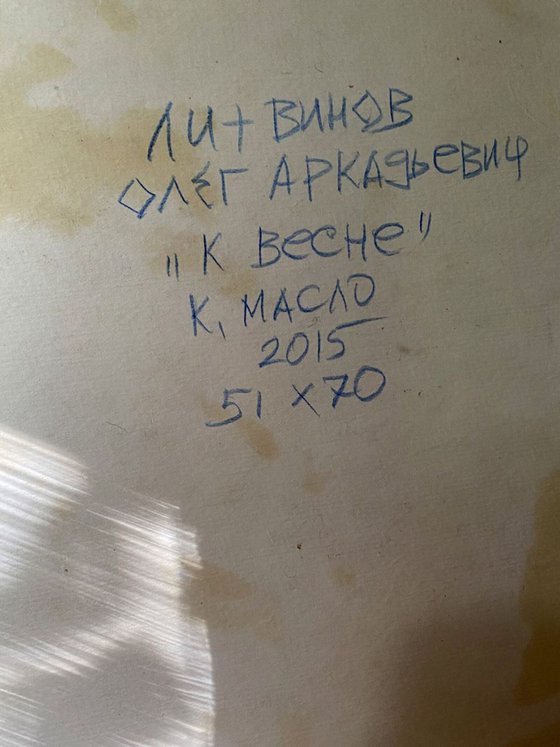 ЛИТВИНОВ
ОЛЕГ АРКАДЬЕВИЧ
"К ВЕСНЕ"
К, МАСЛО
2015
51 х 70